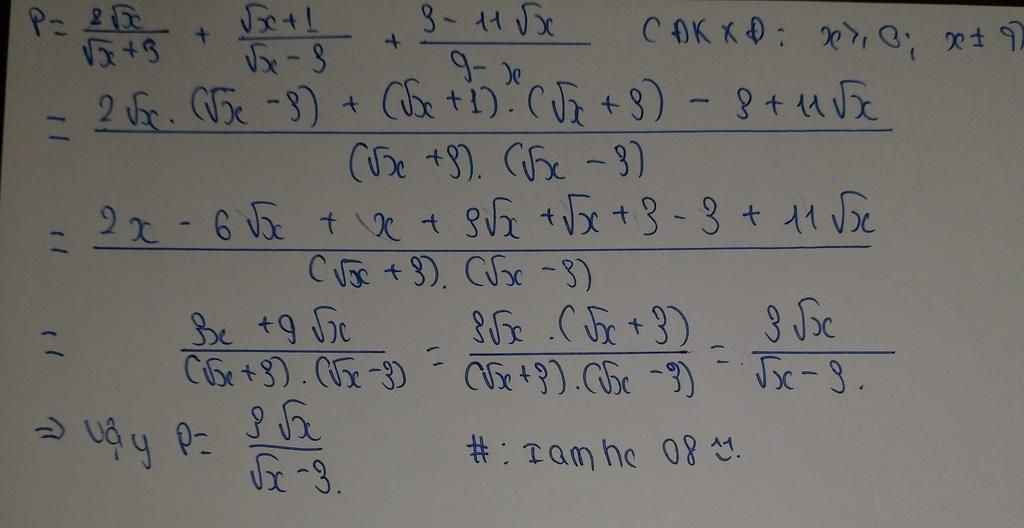 P = 2√x/(√x + 3) + (√x + 1)/(√x - 3) + (3 - 11√x)/(9 - x) (ĐKXĐ: x ≥ 0; x ≠ 9)
= (2√x.(√x - 3) + (√x + 1).(√x + 3) - 3 + 11√x)/((√x + 3).(√x - 3))
= (2x - 6√x + x + 3√x + √x + 3 - 3 + 11√x)/((√x + 3).(√x - 3))
= (3x + 9√x)/((√x + 3).(√x - 3)) = (3√x.(√x + 3))/((√x + 3).(√x - 3)) = 3√x/(√x - 3).
⇒ Vậy P = 3√x/(√x - 3). #: Iamhc 08